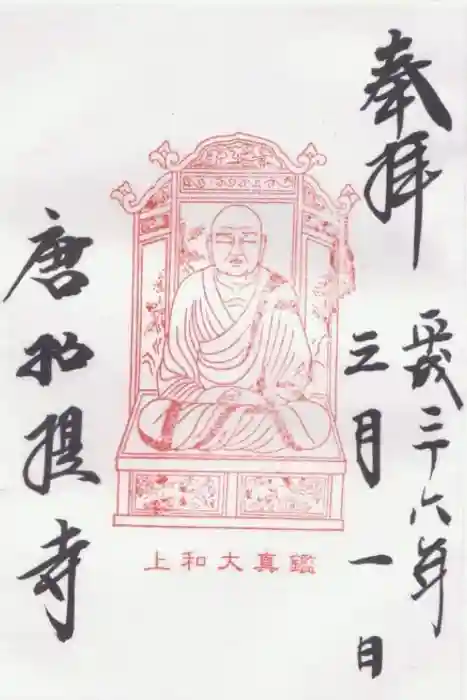 奉拝
平成二十六年
三月一日
上和大真鑑
唐招提寺